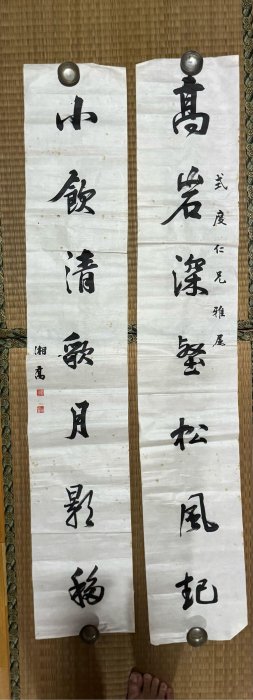 高岩深壑松風起
式度仁兄雅屬
小飲清歌月影移
湘喬